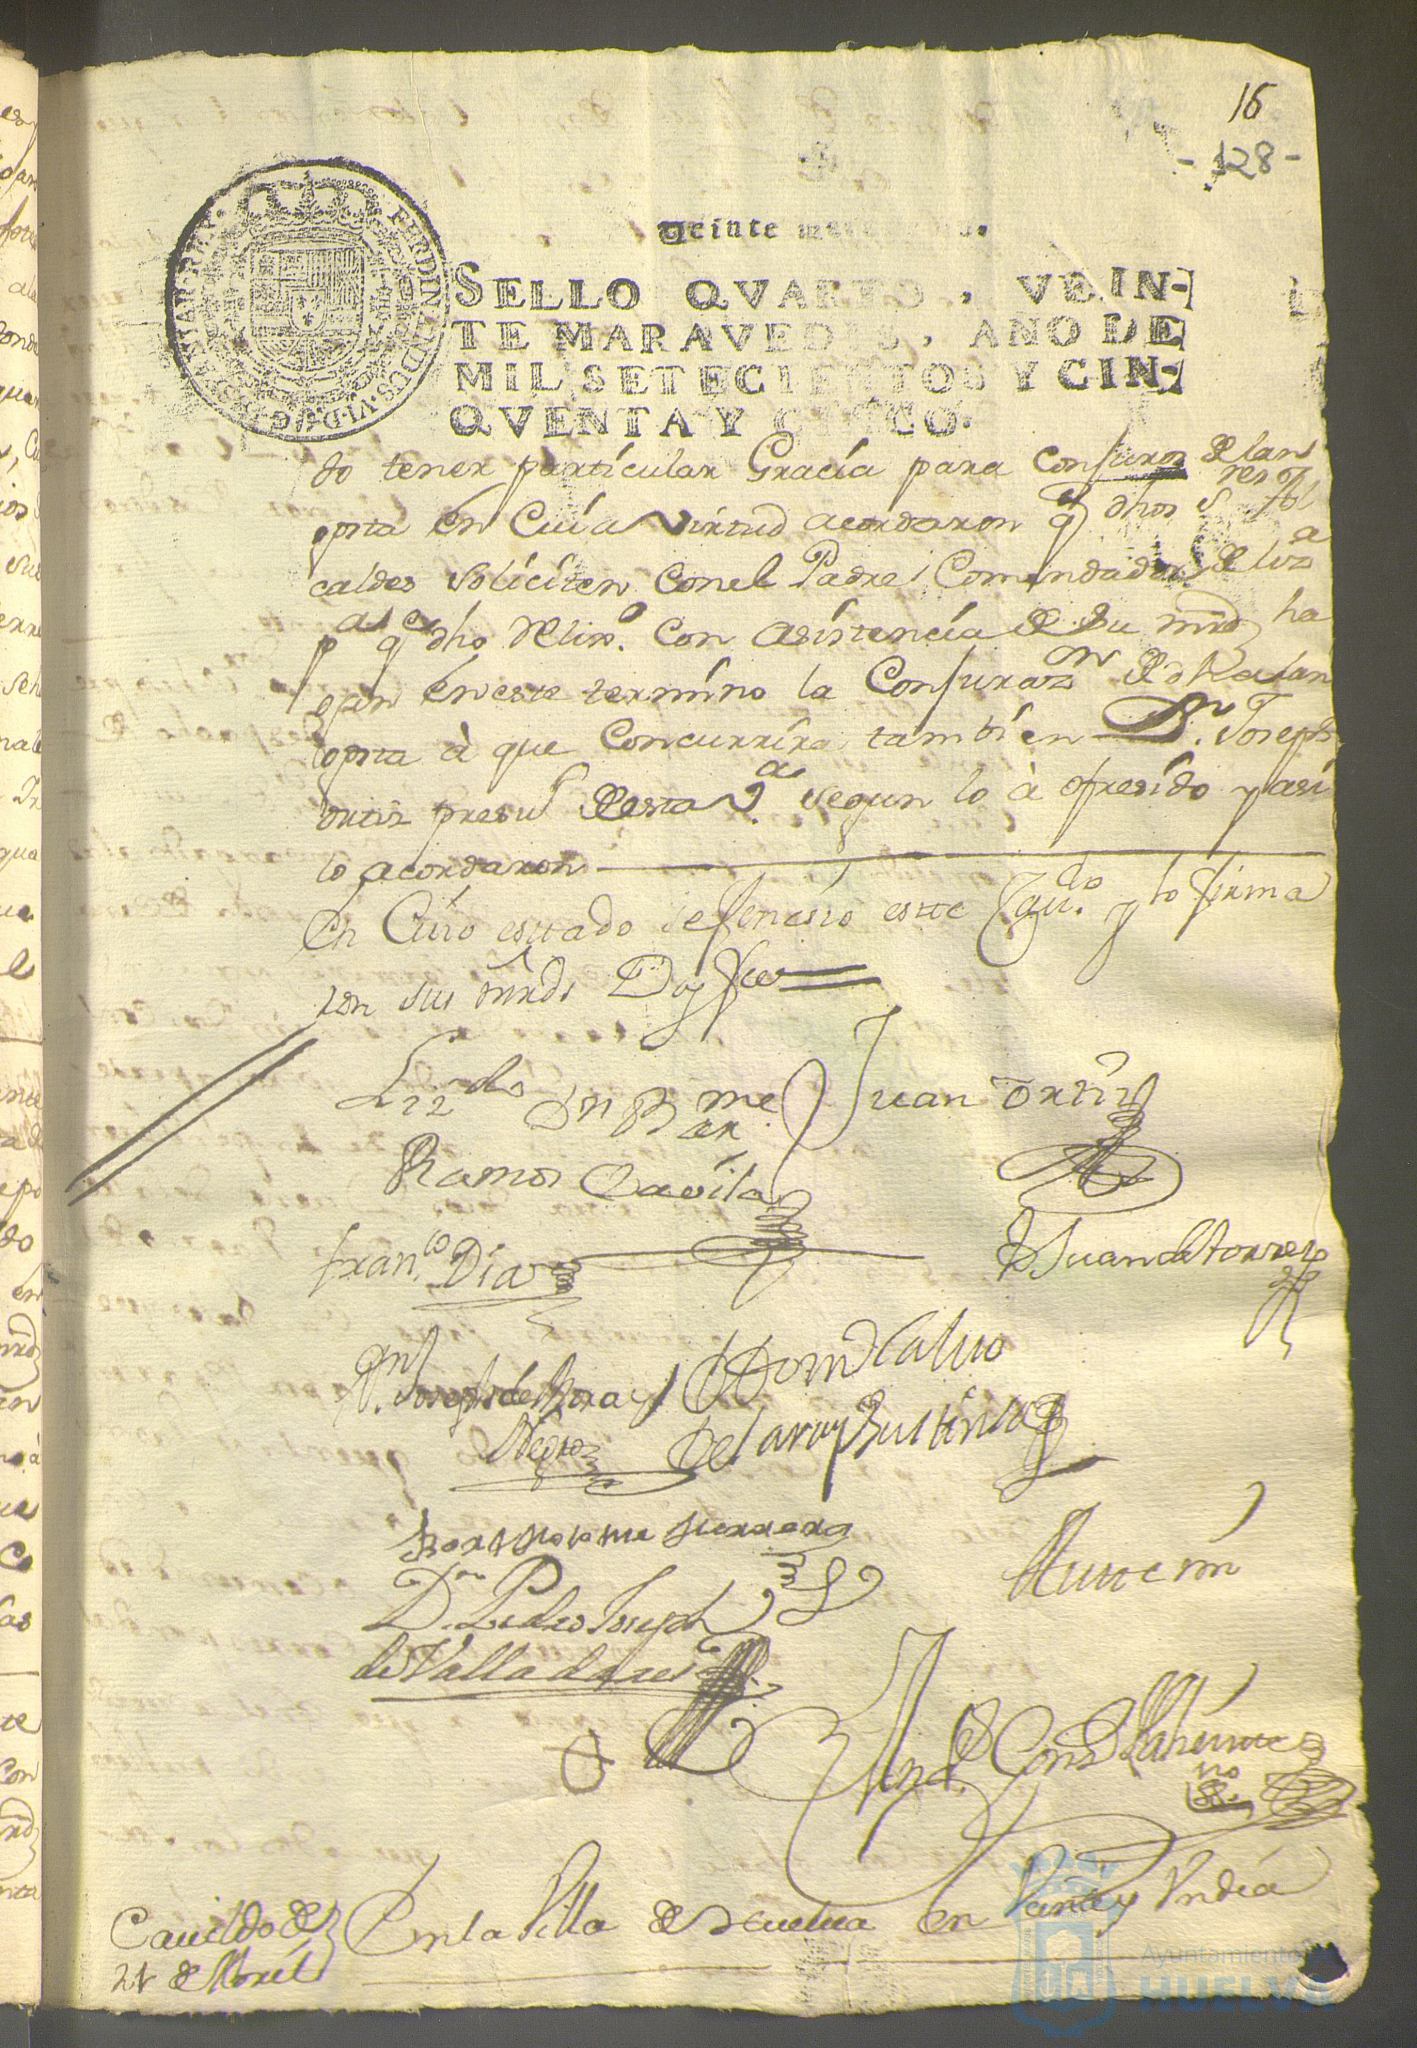 16
-128-
Veinte maravedis.
SELLO QVARTO, VEIN-
TE MARAVEDIS, AÑO DE
MIL SETECIENTOS Y CIN-
QVENTA Y CINCO.
do tener particular Gracia para Conjuros de lan
gosta en Cuia virtud acordaron q dhos Sres Al
caldes soliciten Con el Padre Comendador
pa q dho Con asistencia de su mrd ha
gan en este termino la Conjurazn de dha lan
gosta à que Concurrira tambien Dn Joseph
ortiz presvo de esta Va segun lo à ofresido y asi
lo acordaron
En Cuio esttado se fenesio este y lo firma
ron sus mrds Doy fee
Lizdo Dn Barme Juan Ortiz
Ramos Davila
Franco Diaz Juan de torres
Joseph de Mora y
Negro
Bartholome Herrera
Dn Pedro Joseph
de Valladares
Cavildo de
21 de Abril
En la Villa de Huelva en Veinte y Un dia
Ayuntamiento
HUELVA